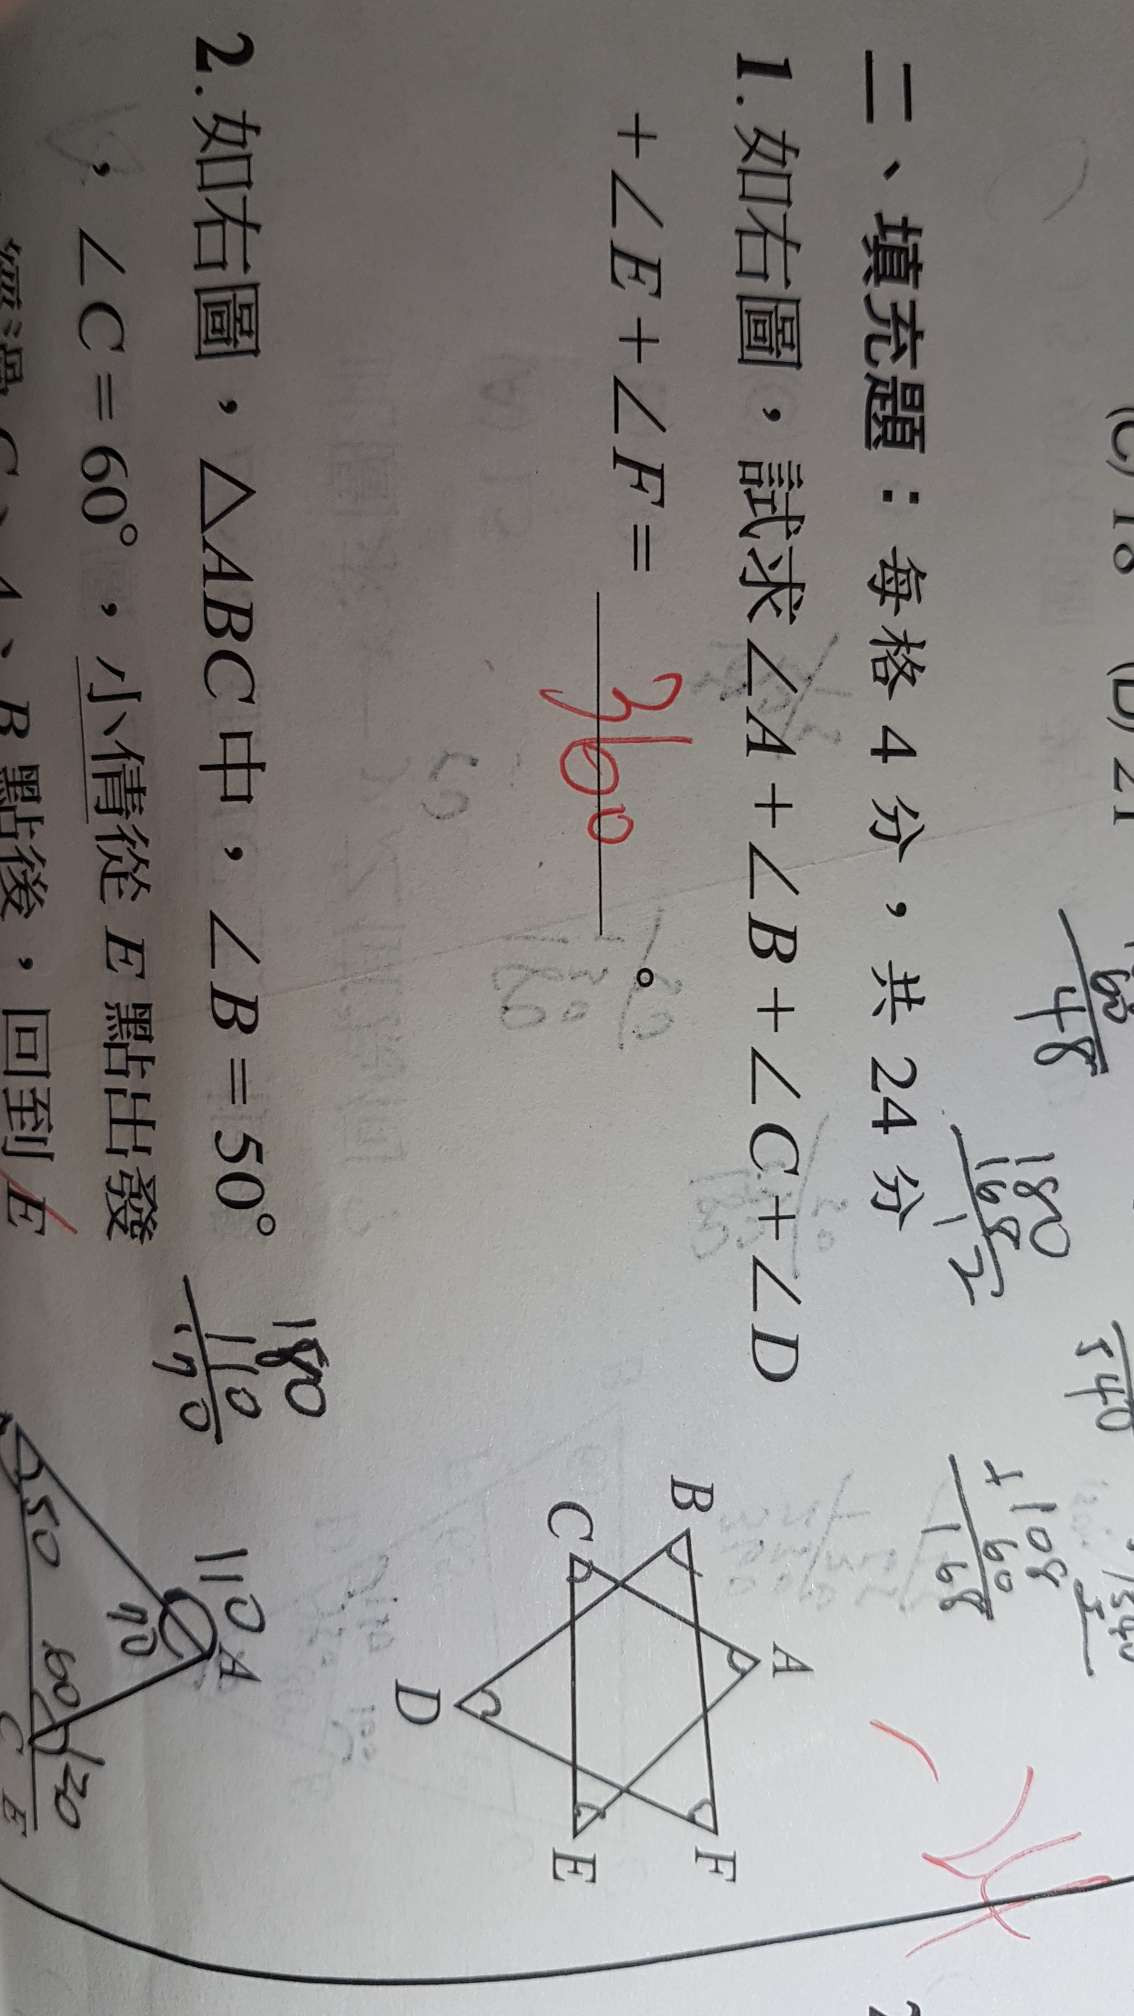 (C) 18 (D) 21
60
48
180
168
12
540
108
+ 60
168
二、填充題：每格 4 分，共 24 分
1.如右圖，試求∠A＋∠B＋∠C＋∠D
＋∠E＋∠F＝360。
B
A
C
F
D
E
2.如右圖，△ABC中，∠B＝50°
，∠C＝60°，小倩從 E 點出發
C、A、B 點後，回到 E
180
110
70
110
A
70
50
60
120
C
E